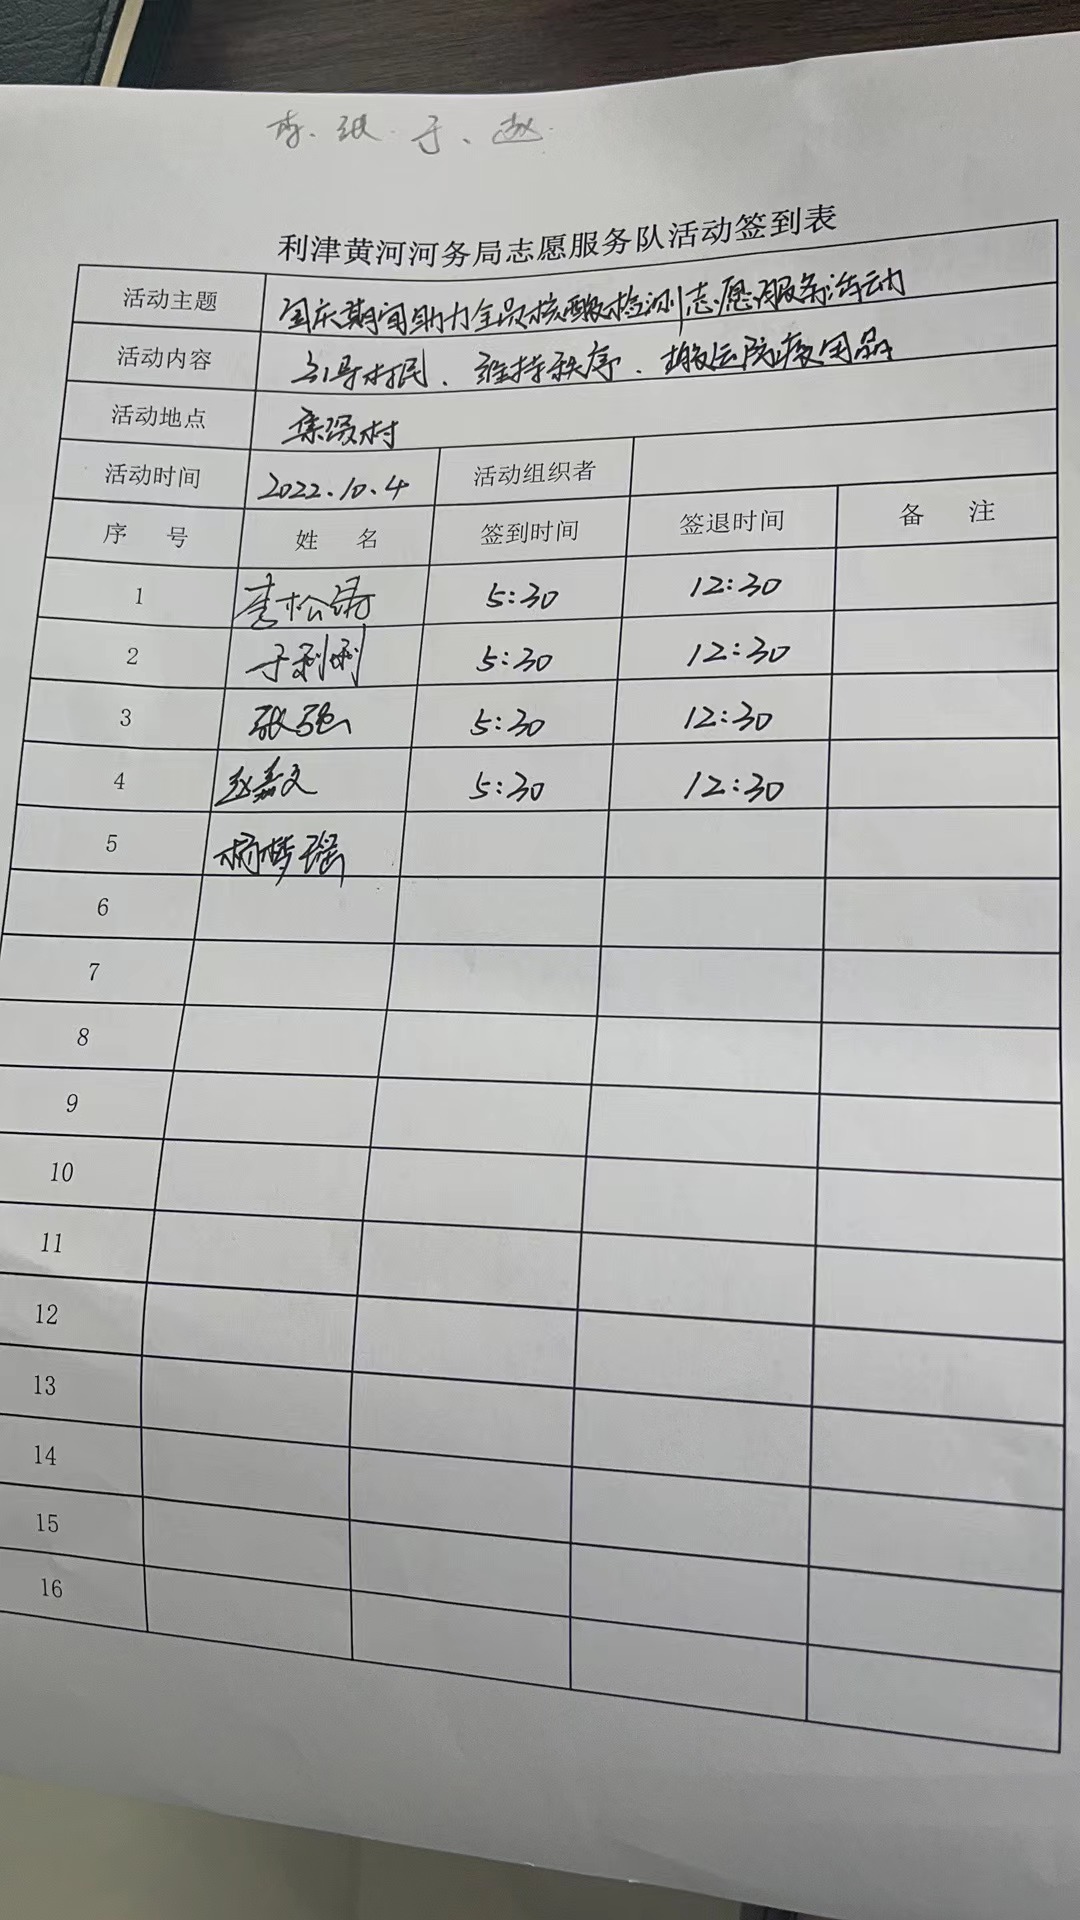 李、张、于、赵
利津黄河河务局志愿服务队活动签到表
活动主题 国庆期间助力全员核酸检测志愿服务活动
活动内容 引导村民、维持秩序、搬运防疫用品
活动地点 集贤村
活动时间 2022.10.4 活动组织者
序 号 姓 名 签到时间 签退时间 备 注
1 李松 5:30 12:30
2 于利利 5:30 12:30
3 张强 5:30 12:30
4 赵嘉文 5:30 12:30
5 杨梦瑶
6
7
8
9
10
11
12
13
14
15
16